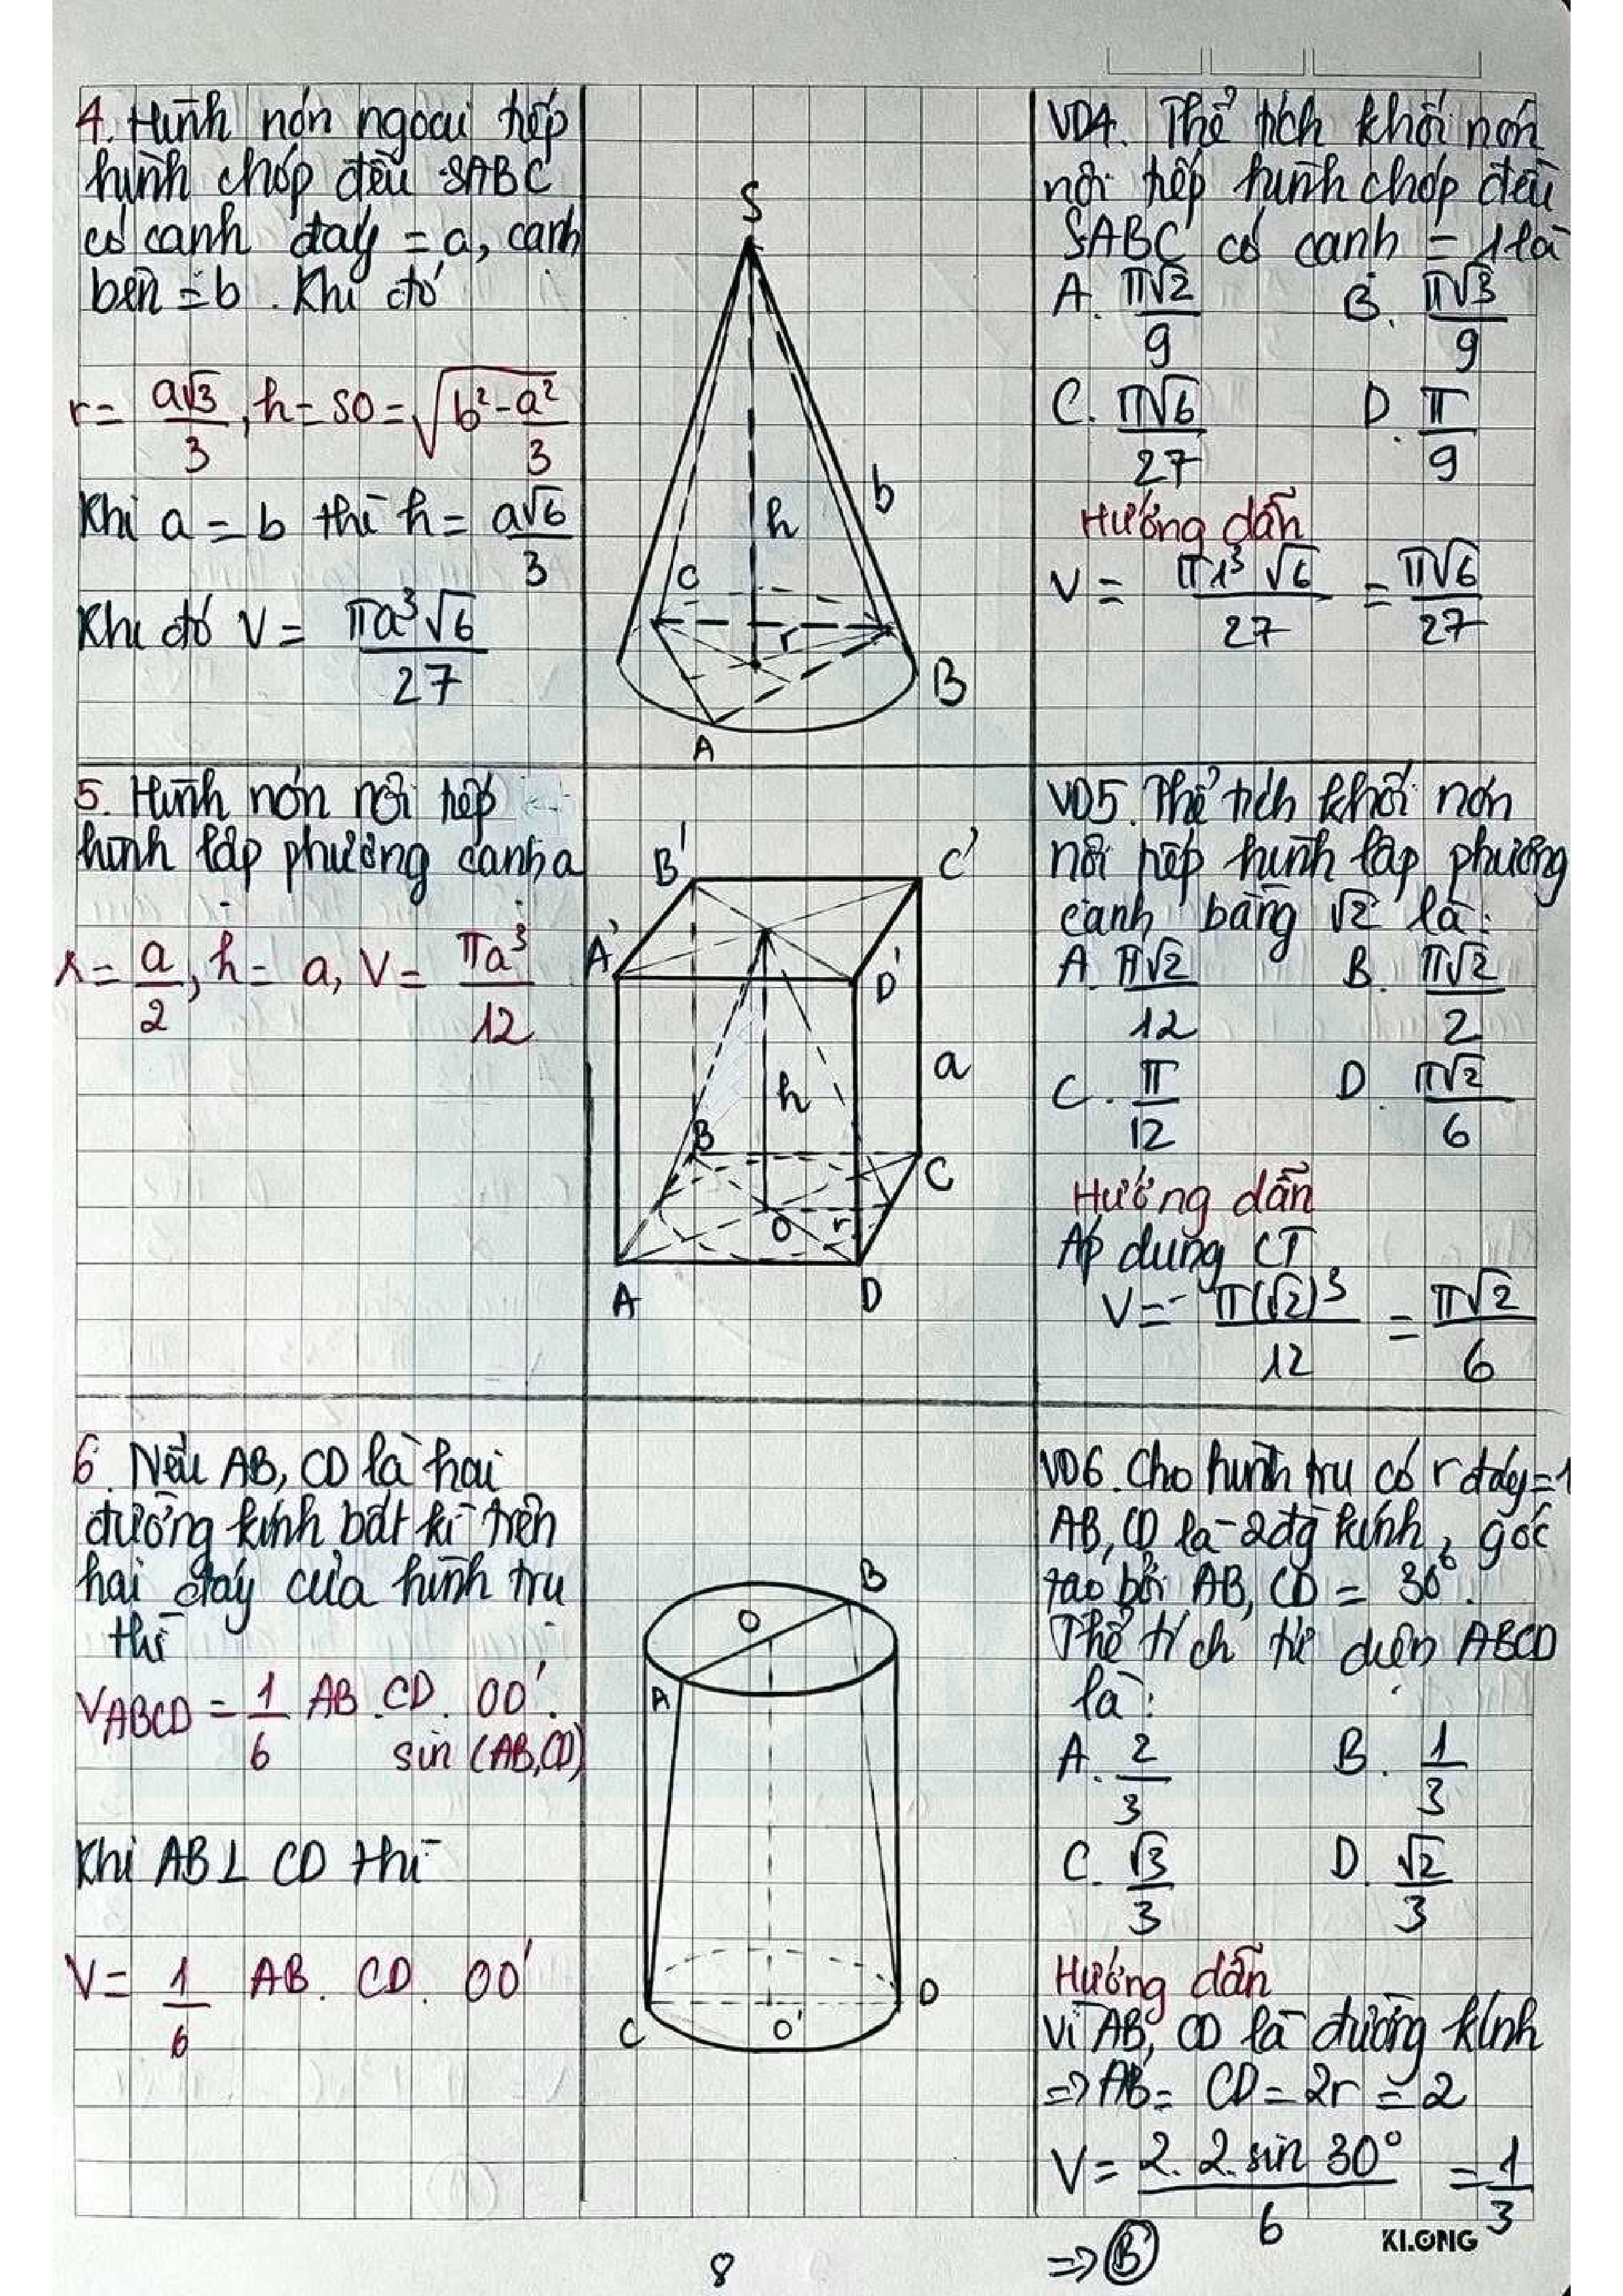 4. Hình nón ngoại tiếp
hình chóp đều SABC
có cạnh đáy = a, cạnh
bên = b. Khi đó
r = a√3/3, h = SO = √(b² - a²/3)
Khi a = b thì h = a√6/3
Khi đó V = πa³√6/27
S
b
h
C
r
B
A
VD4. Thể tích khối nón
nội tiếp hình chóp đều
SABC có cạnh = 1 là
A. π√2/9 B. π√3/9
C. π√6/27 D. π/9
Hướng dẫn
V = π1³√6/27 = π√6/27
5. Hình nón nội tiếp
hình lập phương cạnh a
r = a/2, h = a, V = πa³/12
B' C'
A' D'
a
h
B
C
O r
A D
VD5. Thể tích khối nón
nội tiếp hình lập phương
cạnh bằng √2 là:
A. π√2/12 B. π√2/2
C. π/12 D. π√2/6
Hướng dẫn
Áp dụng CT
V = π(√2)³/12 = π√2/6
6. Nếu AB, CD là hai
đường kính bất kì trên
hai đáy của hình trụ
thì
VABCD = 1/6 AB.CD.OO'.
sin (AB,CD)
Khi AB⊥CD thì
V = 1/6 AB.CD.OO'
B
O
A
D
C O'
VD6. Cho hình trụ có r đáy = 1
AB, CD là 2 đg kính, góc
tạo bởi AB, CD = 30°.
Thể tích tứ diện ABCD
là:
A. 2/3 B. 1/3
C. √3/3 D. √2/3
Hướng dẫn
Vì AB, CD là đường kính
=> AB = CD = 2r = 2
V = 2.2.sin 30°/6 = 1/3
=> B
8
KLONG